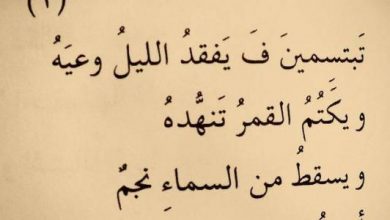 (١)
تَبتسِمينَ فَ يَفقدُ الليلُ وعيَهُ
و يكَتُمُ القمرُ تَنهُّدهُ
و يسقطُ من السماءِ نجمٌ